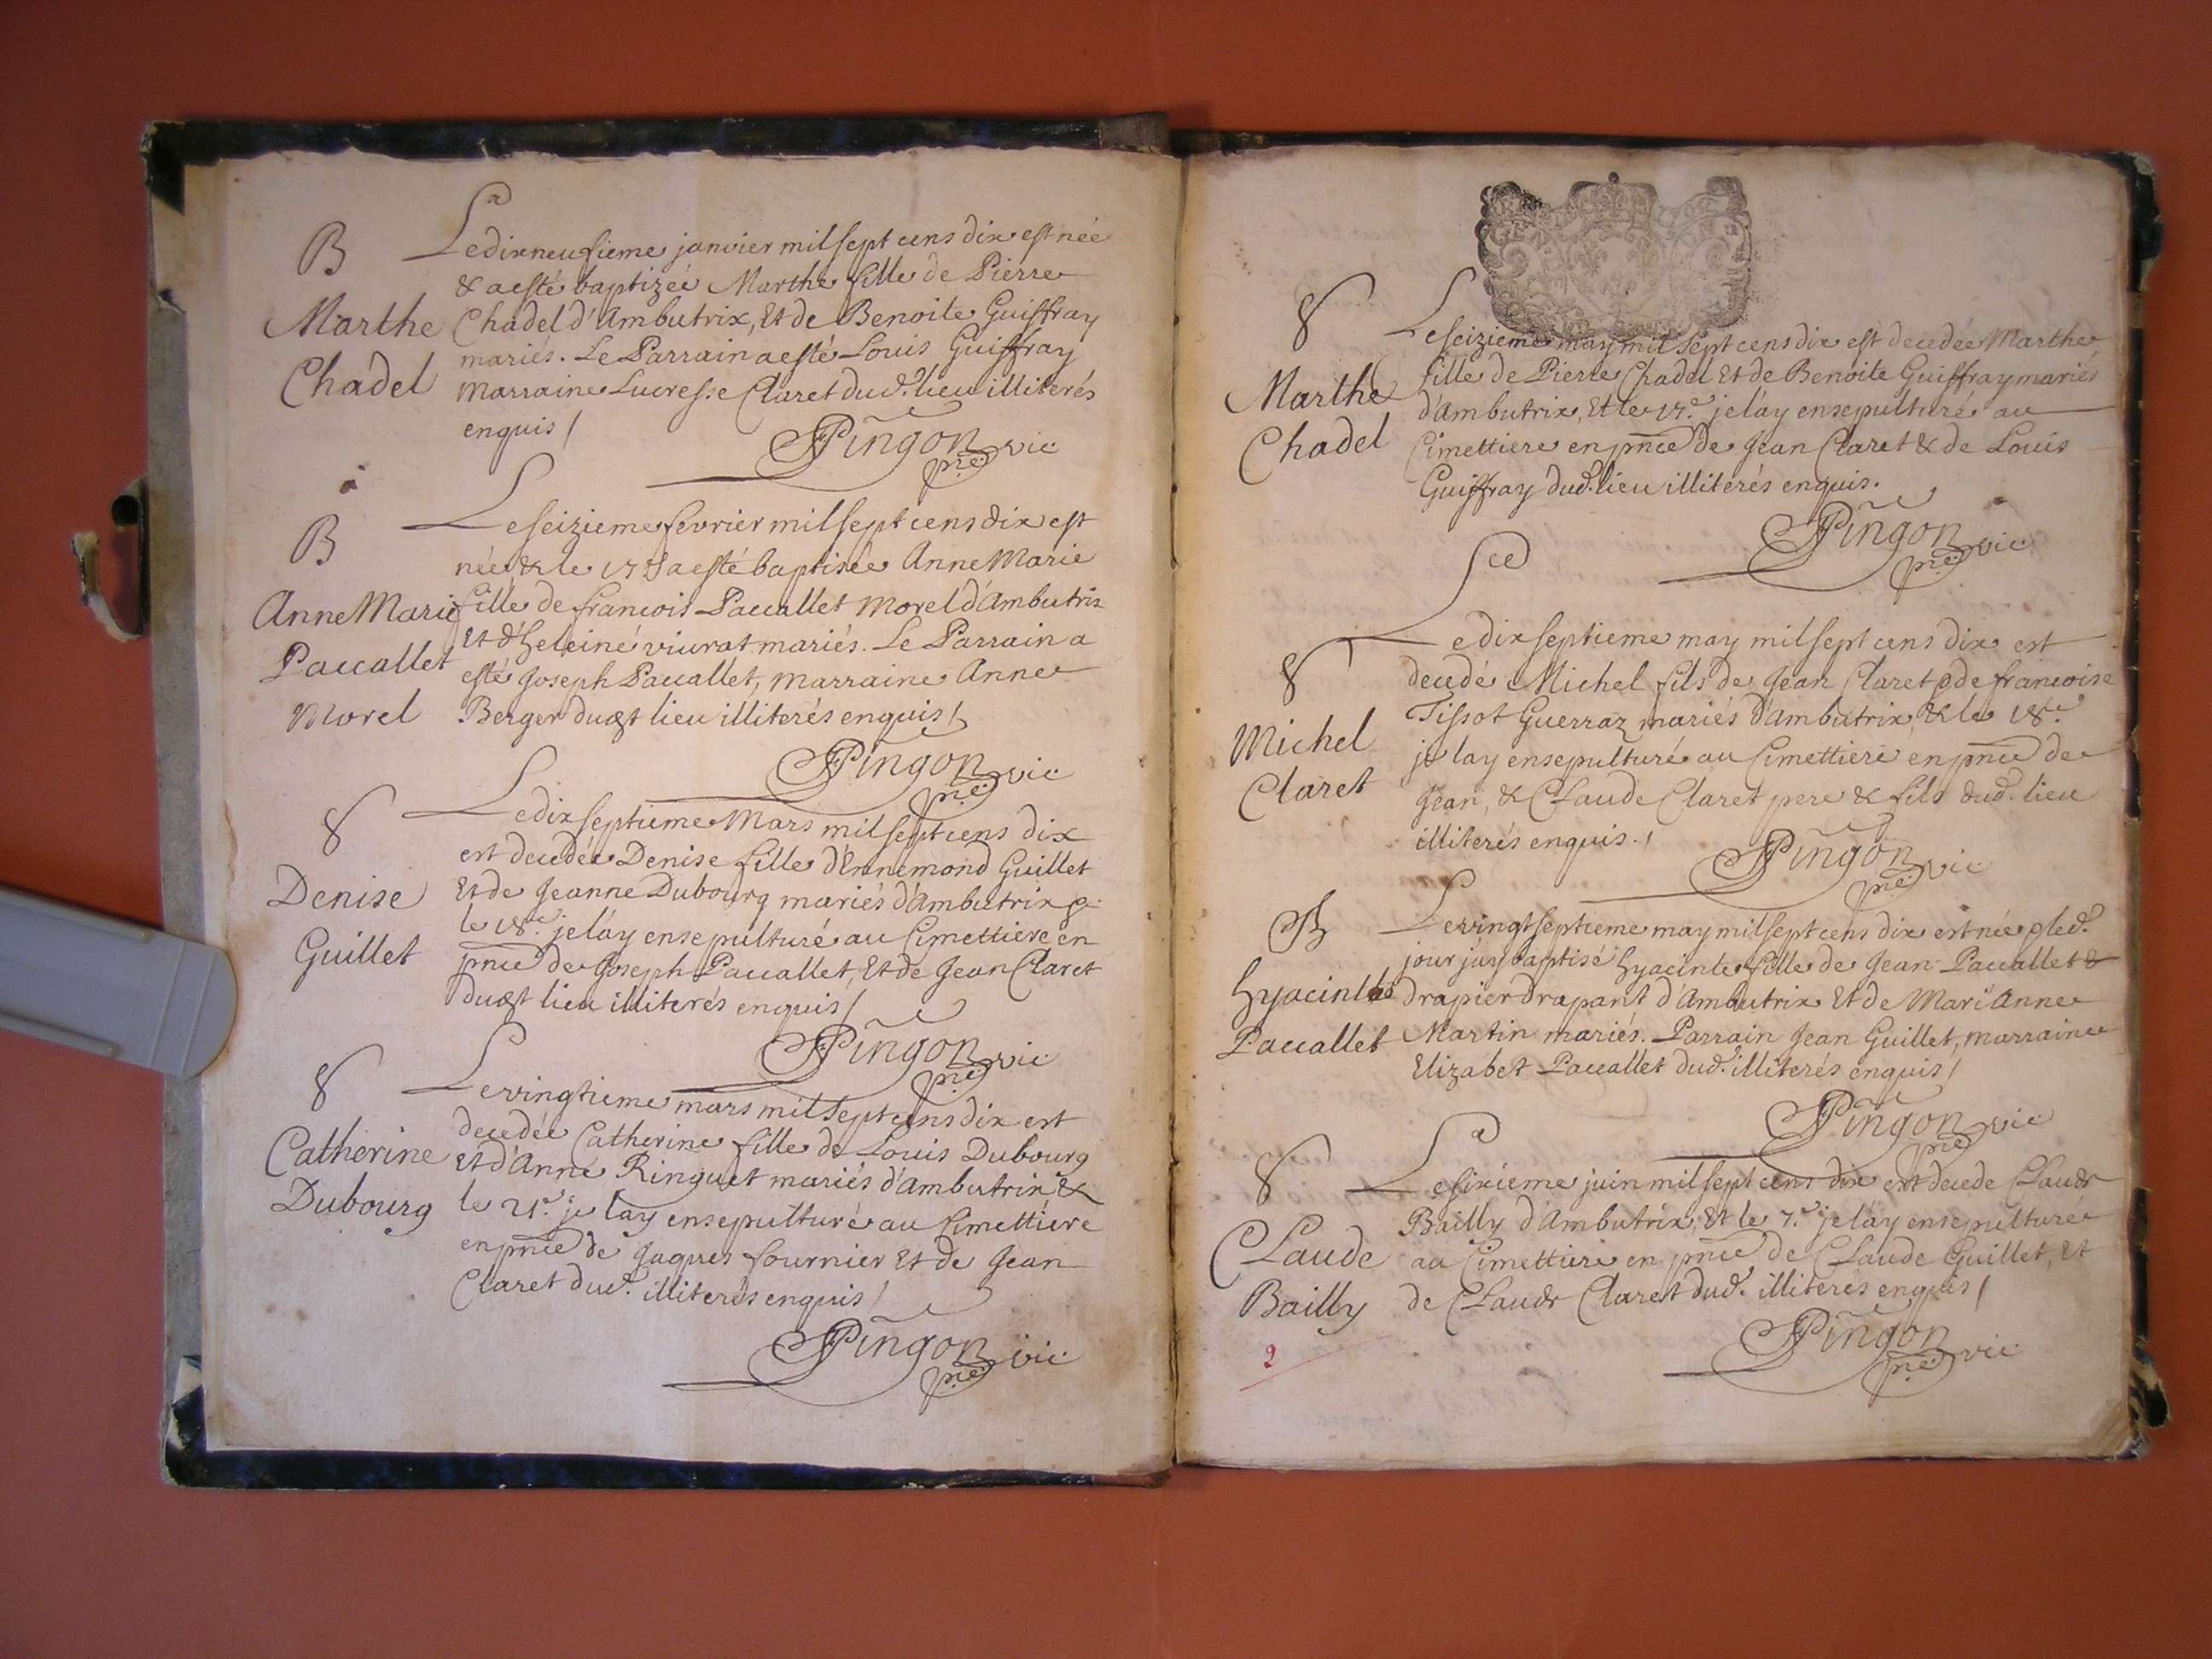 B
Marthe
Chadel
Le dixneufieme janvier mil sept cens dix est née
& a esté baptizée Marthe fille de Pierre
Chadel d'Ambutrix, Et de Benoite Guiffray
mariés. Le Parrain a esté Louis Guiffray
Marraine Lucresse Claret dud. lieu illiterés
enquis /
Pingon vic
B
Anne Marie
Paccallet
Morel
Le seizieme fevrier mil sept cens dix est
née & le 17 a esté baptisée Anne Marie
fille de francois Paccallet Morel d'Ambutrix
Et d'heleine viurat mariés. Le Parrain a
esté Joseph Paccallet, marraine Anne
Berger dudt lieu illiterés enquis /
Pingon vic
8
Denise
Guillet
Le dix septieme Mars mil sept cens dix
est decedée Denise fille d'Ennemond Guillet
Et de Jeanne Dubourg mariés d'Ambutrix &
le 18.e je l'ay ensepulturé au Cimettiere en
pnce de Joseph Paccallet, Et de Jean Claret
dudt lieu illiterés enquis /
Pingon vic
8
Catherine
Dubourg
Le vingtieme mars mil sept cens dix est
decedée Catherine fille de Louis Dubourg
Et d'Anne Ringuet mariés d'Ambutrix &
le 21.e je lay ensepulturé au Cimettiere
en pnce de Jaques fournier Et de Jean
Claret dud. illiterés enquis /
Pingon vic
8
Marthe
Chadel
Le seizieme may mil sept cens dix est decedée Marthe
fille de Pierre Chadel Et de Benoite Guiffray mariés
d'Ambutrix, Et le 17.e je l'ay ensepulturé au
Cimettiere en pnce de Jean Claret & de Louis
Guiffray dud. lieu illiterés enquis.
Pingon vic
8
Michel
Claret
Le dix septieme may mil sept cens dix est
decedé Michel fils de Jean Claret & de francoise
Tissot Guerraz mariés d'Ambutrix, & le 18.e
je lay ensepulturé au Cimettiere en pnce de
Jean, & Claude Claret pere & fils dud. lieu
illiterés enquis. /
Pingon vic
B
Hyacinthe
Paccallet
Le vingt septieme may mil sept cens dix est née & led.
jour j'ay baptisé hyacinte fille de Jean Paccallet &
drapier drapant d'Ambutrix Et de Mari Anne
Martin mariés. Parrain Jean Guillet, marraine
Elizabet Paccallet dud. illiterés enquis /
Pingon vic
8
Claude
Bailly
Le sixieme juin mil sept cens dix est decede Claude
Bailly d'Ambutrix, Et le 7.e je l'ay ensepulturé
au Cimettiere en pnce de Claude Guillet, Et
de Claude Claret dud. illiterés enquis /
Pingon vic
2